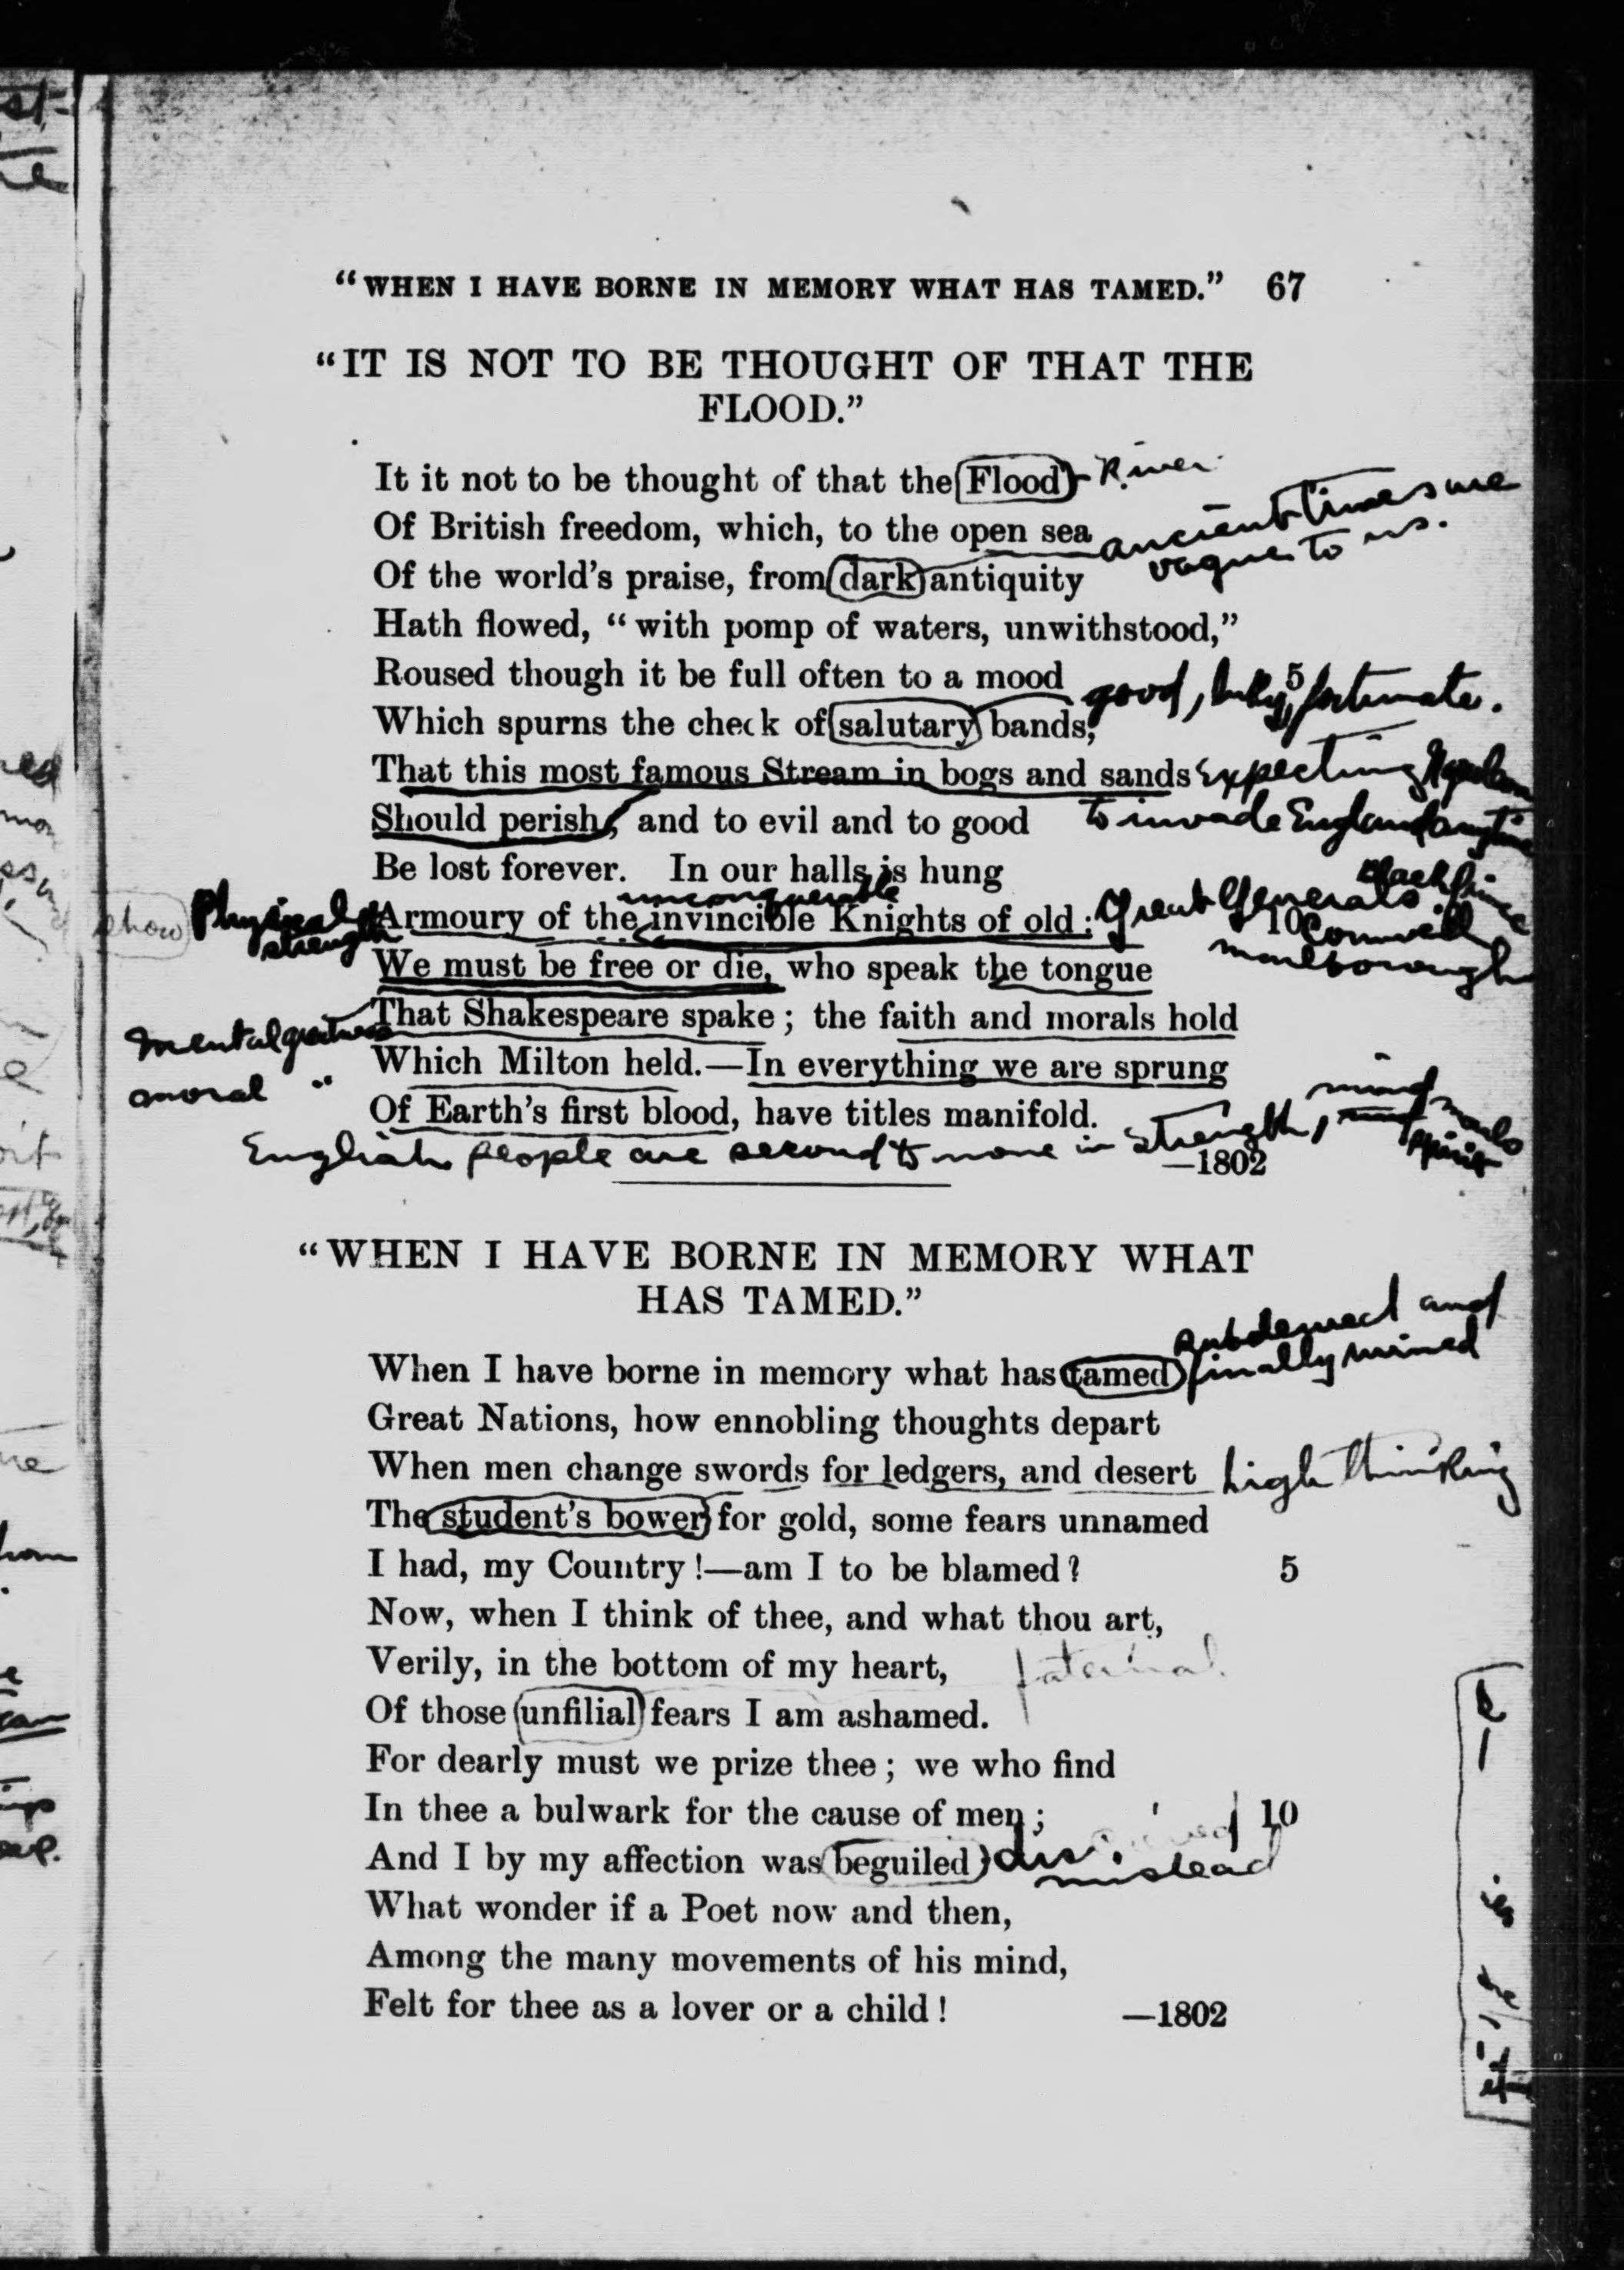 "WHEN I HAVE BORNE IN MEMORY WHAT HAS TAMED." 67
"IT IS NOT TO BE THOUGHT OF THAT THE
FLOOD."
It it not to be thought of that the Flood River
Of British freedom, which, to the open sea ancient times are
vague to us.
Of the world's praise, from dark antiquity
Hath flowed, "with pomp of waters, unwithstood,"
Roused though it be full often to a mood 5
good, fortunate.
Which spurns the check of salutary bands,
That this most famous Stream in bogs and sands Expecting Napoleon
Should perish; and to evil and to good to invade England anytime
Be lost forever. In our halls is hung
Black Prince
show Physical strength unconquerable
Armoury of the invincible Knights of old: Great Generals 10
Cromwell
Marlborough
We must be free or die, who speak the tongue
That Shakespeare spake; the faith and morals hold
mental greatness
Which Milton held.—In everything we are sprung
moral "
Of Earth's first blood, have titles manifold.
English people are second to none in strength, mind morals spirit
—1802
"WHEN I HAVE BORNE IN MEMORY WHAT
HAS TAMED."
and
finally ruined
When I have borne in memory what has tamed
Great Nations, how ennobling thoughts depart
When men change swords for ledgers, and desert high thinking
The student's bower for gold, some fears unnamed
I had, my Country!—am I to be blamed? 5
Now, when I think of thee, and what thou art,
Verily, in the bottom of my heart,
Of those unfilial fears I am ashamed.
For dearly must we prize thee; we who find
In thee a bulwark for the cause of men; 10
And I by my affection was beguiled
mislead
What wonder if a Poet now and then,
Among the many movements of his mind,
Felt for thee as a lover or a child! —1802